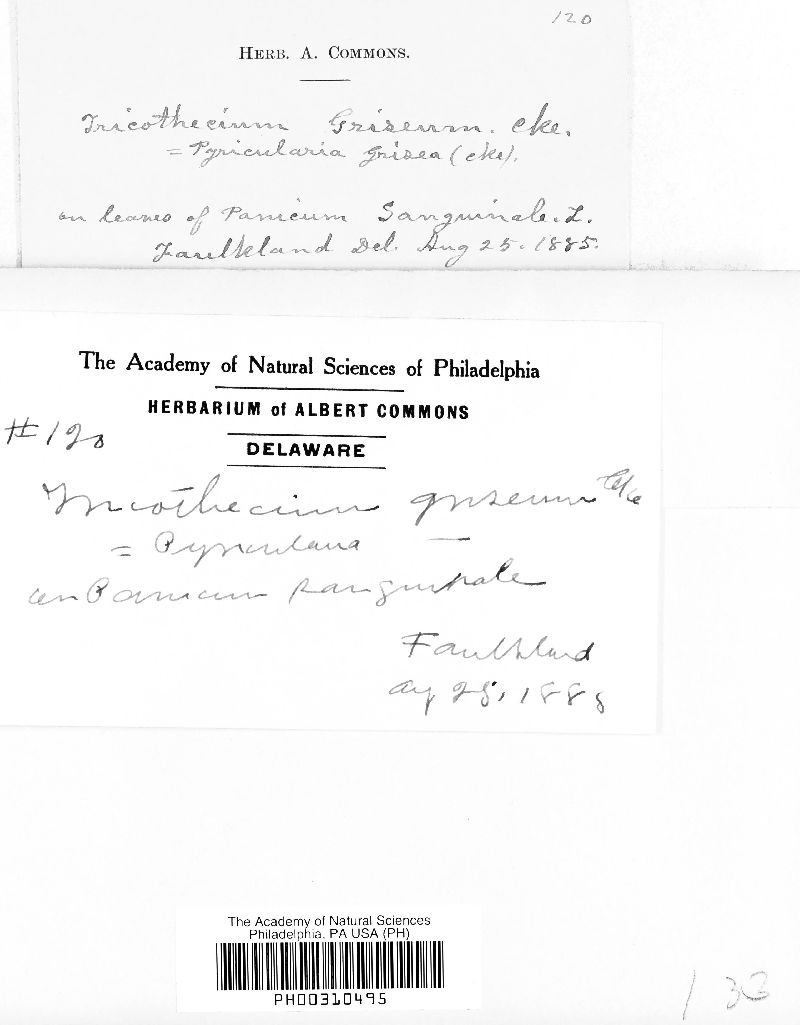 120
HERB. A. COMMONS.
Tricothecium Griseum. cke.
= Pyricularia grisea (cke).
on leaves of Panicum Sanguinale. L.
Faulkland Del. Aug 25. 1885.
The Academy of Natural Sciences of Philadelphia
HERBARIUM of ALBERT COMMONS
#120
DELAWARE
Tricothecium griseum Cke
= Pyricularia —
on Panicum sanguinale
Faulkland
Aug 25, 1885
The Academy of Natural Sciences
Philadelphia, PA USA (PH)
PH00310495
133